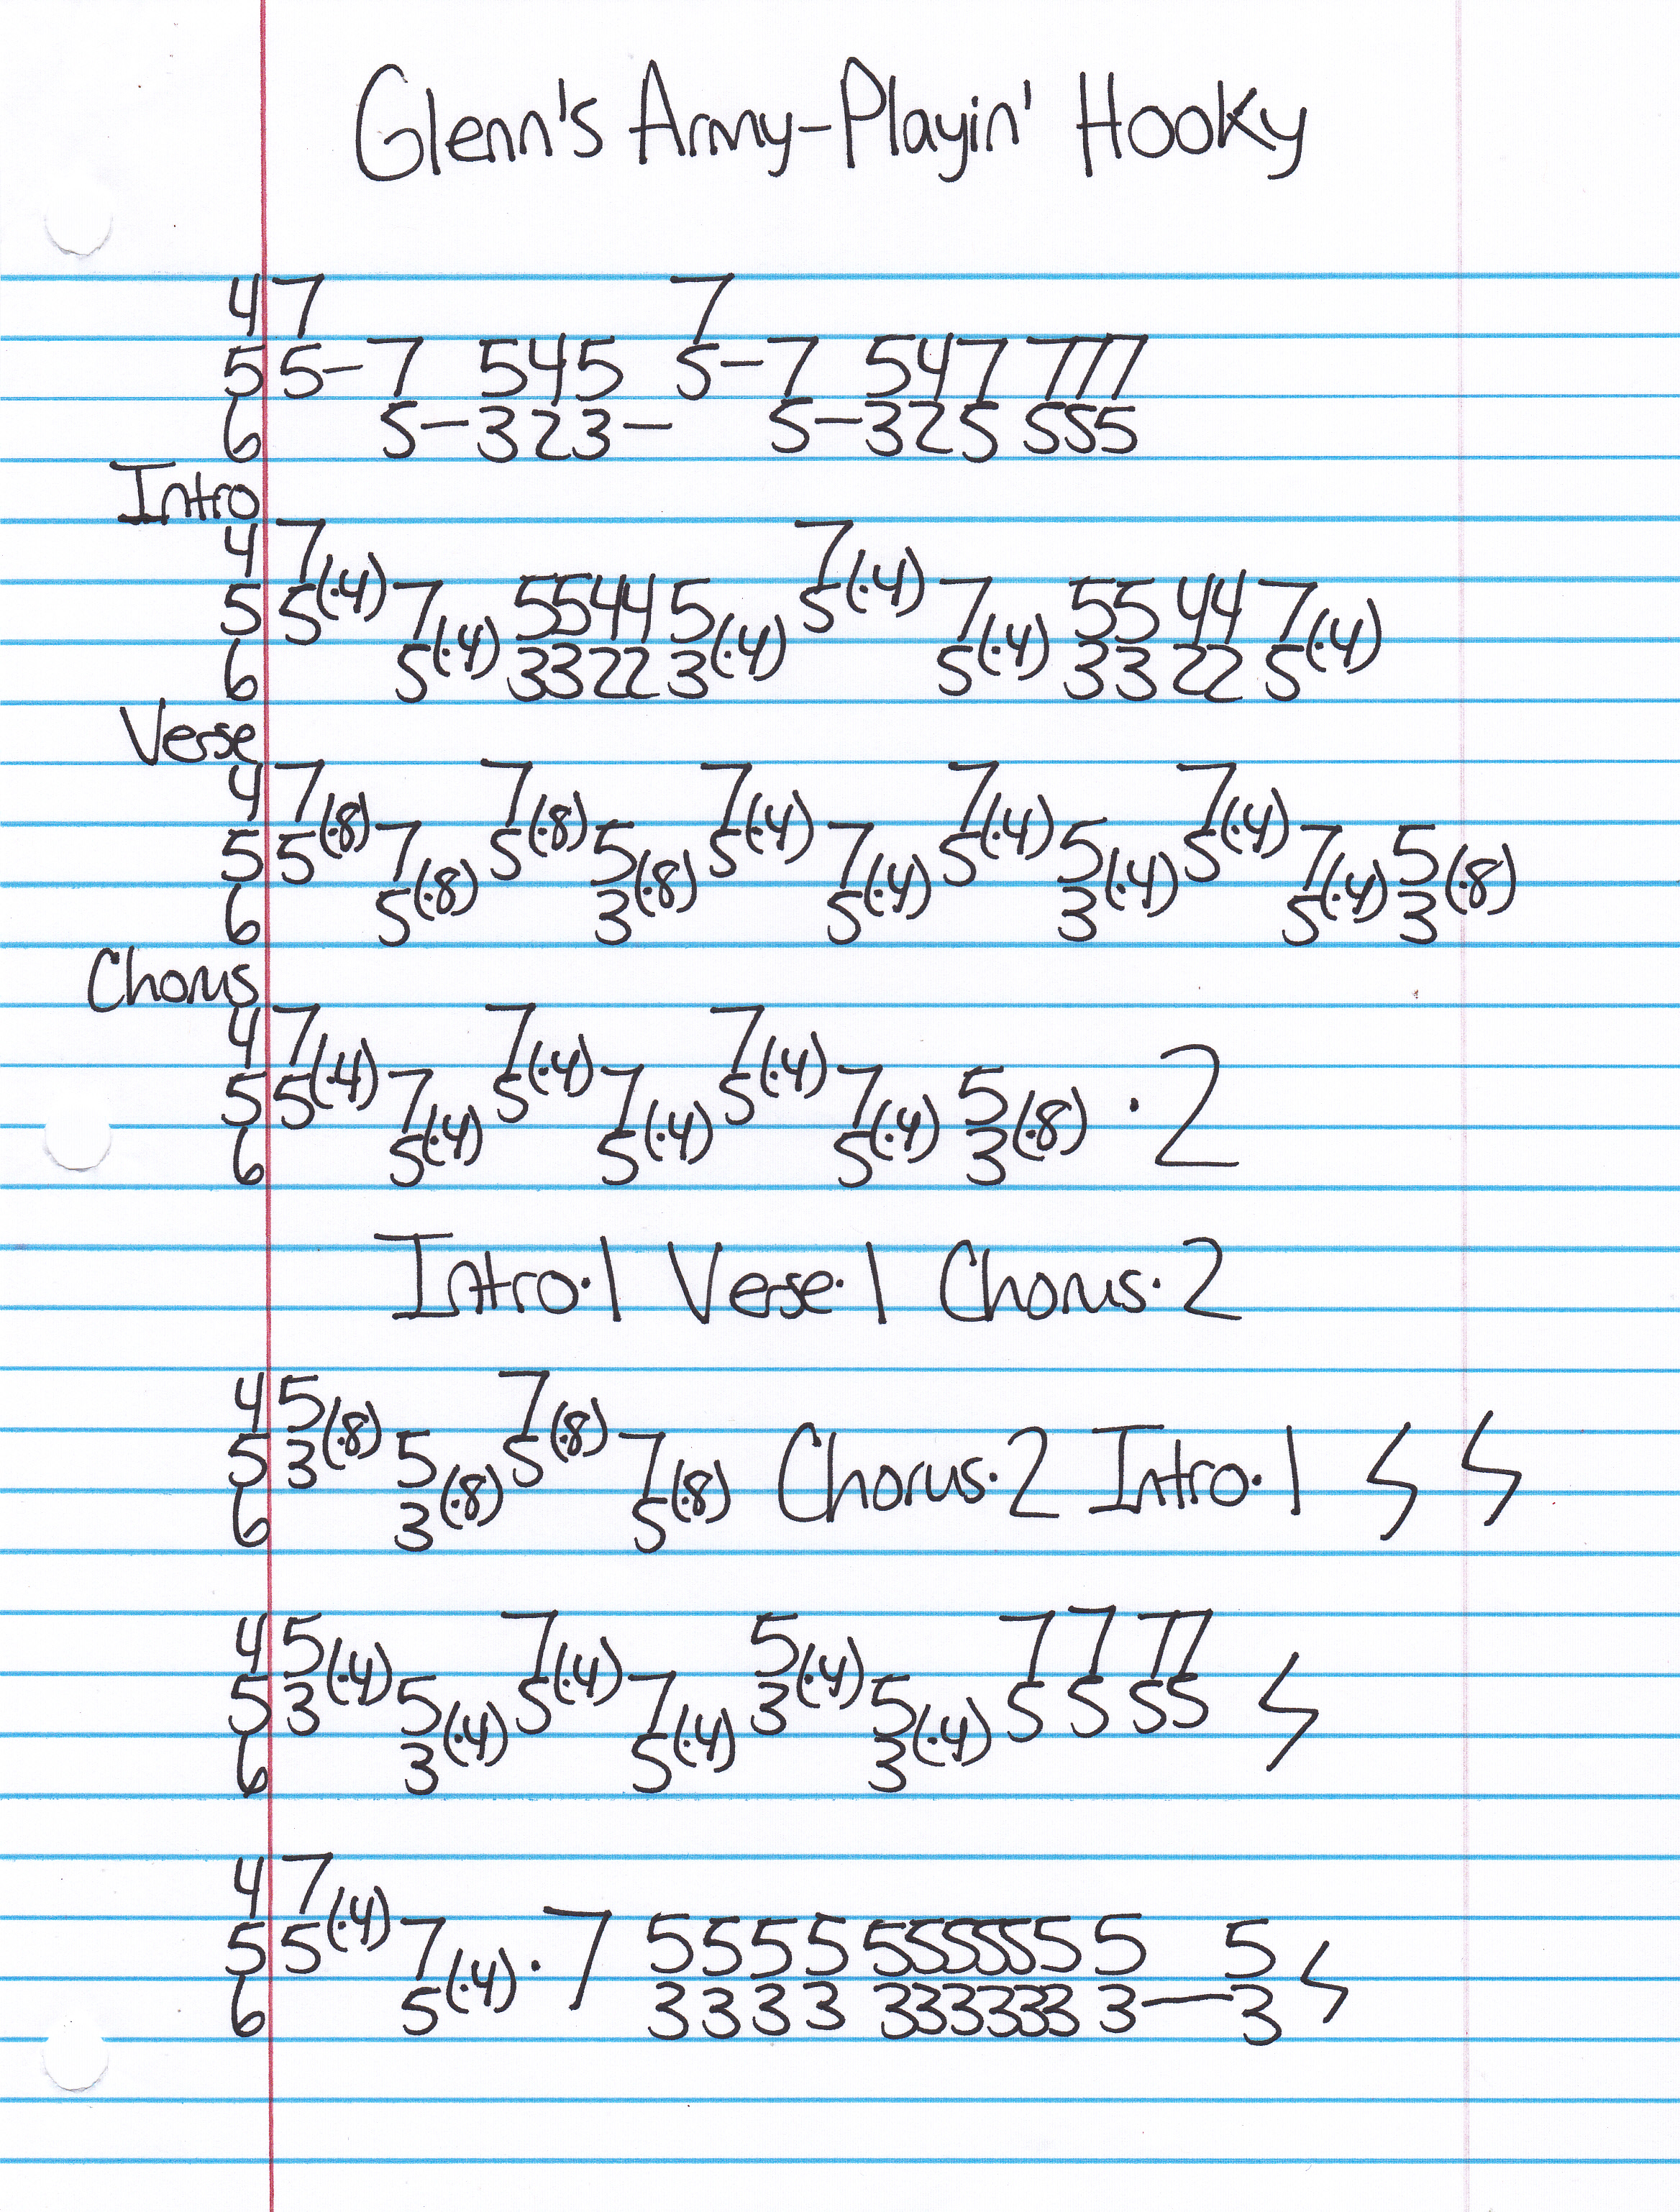 Glenn's Army-Playin' Hooky
4 7 7
5 5-7 545 5-7 547 777
6 5-323- 5-325 555
Intro
4 7(·4) 7(·4)
5 5 7(·4) 5544 5(·4) 5 7(·4) 55 44 7(·4)
6 5 3322 3 5 33 22 5
Verse
4 7(·8) 7(·8) 7(·4) 7(·4) 7(·4)
5 5 7(·8) 5 5(·8) 5 7(·4) 5 5(·4) 5 7(·4) 5(·8)
6 5 3 5 3 5 3
Chorus
4 7(·4) 7(·4) 7(·4)
5 5 7(·4) 5 7(·4) 5 7(·4) 5(·8) ·2
6 5 5 5 3
Intro·1 Verse·1 Chorus·2
4 5(·8) 7(·8)
5 3 5(·8) 5 7(·8) Chorus·2 Intro·1
6 3 5
4 5(·4) 7(·4) 5(·4) 7 7 77
5 3 5(·4) 5 7(·4) 3 5(·4) 5 5 55
6 3 5 3
4 7(·4)
5 5 7(·4)·7 5555 555555 5 5
6 5 3333 333333 3—3